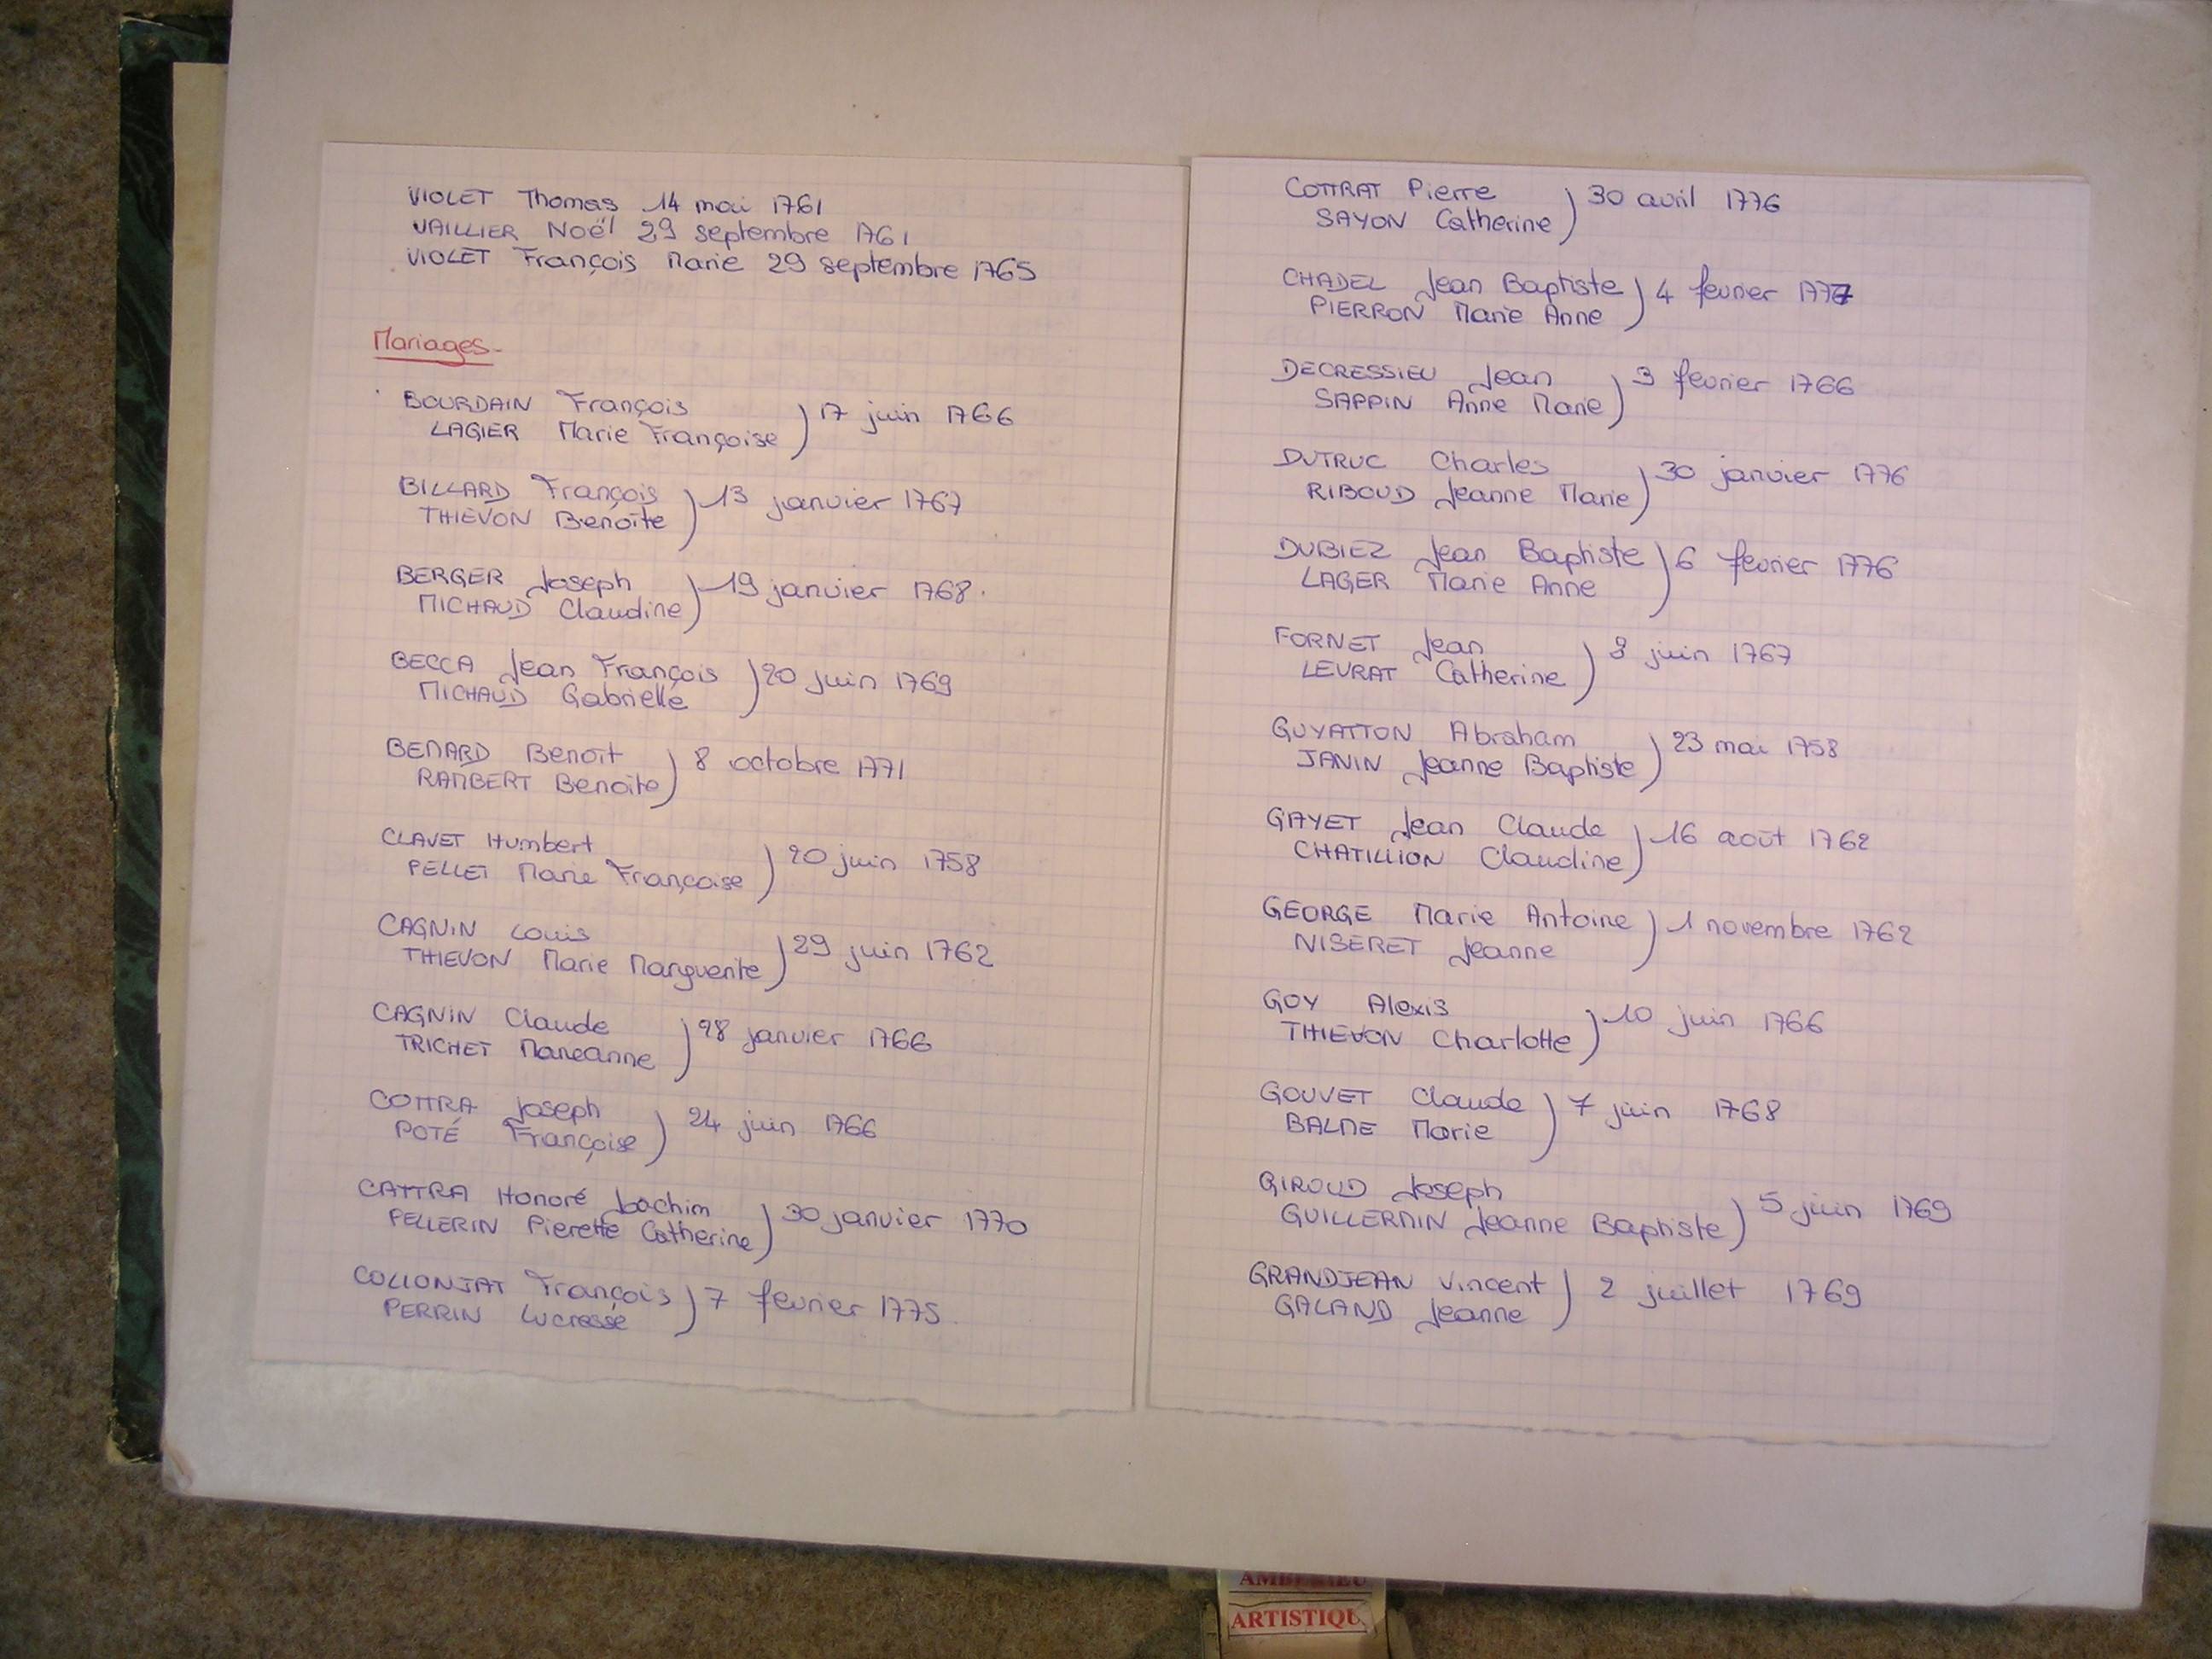 VIOLET Thomas 14 mai 1761
VAILLIER Noël 29 septembre 1761
VIOLET François Marie 29 septembre 1765
Mariages
BOURDAIN François
LAGIER Marie Françoise ) 17 juin 1766
BILLARD François
THIEVON Benoîte ) 13 janvier 1767
BERGER Joseph
MICHAUD Claudine ) 19 janvier 1768.
BECCA Jean François
MICHAUD Gabrielle ) 20 juin 1769
BENARD Benoit
RAMBERT Benoîte ) 8 octobre 1771
CLAVET Humbert
PELLET Marie Françoise ) 20 juin 1758
CAGNIN Louis
THIEVON Marie Marguerite ) 29 juin 1762
CAGNIN Claude
TRICHET Marieanne ) 28 janvier 1766
COTTRA Joseph
POTÉ Françoise ) 24 juin 1766
CATTRA Honoré Joachim
PELLERIN Pierette Catherine ) 30 janvier 1770
COLLONJAT François
PERRIN Lucresse ) 7 fevrier 1775
COTTRAT Pierre
SAYON Catherine ) 30 avril 1776
CHADEL Jean Baptiste
PIERRON Marie Anne ) 4 fevrier 1777
DECRESSIEU Jean
SAPPIN Anne Marie ) 3 fevrier 1766
DUTRUC Charles
RIBOUD Jeanne Marie ) 30 janvier 1776
DUBIEZ Jean Baptiste
LAGER Marie Anne ) 6 fevrier 1776
FORNET Jean
LEVRAT Catherine ) 8 juin 1767
GUYATTON Abraham
JANIN Jeanne Baptiste ) 23 mai 1758
GAYET Jean Claude
CHATILLION Claudine ) 16 août 1762
GEORGE Marie Antoine
NISERET Jeanne ) 1 novembre 1762
GOY Alexis
THIEVON Charlotte ) 10 juin 1766
GOUVET Claude
BALME Marie ) 7 juin 1768
GIROUD Joseph
GUILLERMIN Jeanne Baptiste ) 5 juin 1769
GRANDJEAN Vincent
GALAND Jeanne ) 2 juillet 1769
ARTISTIQU